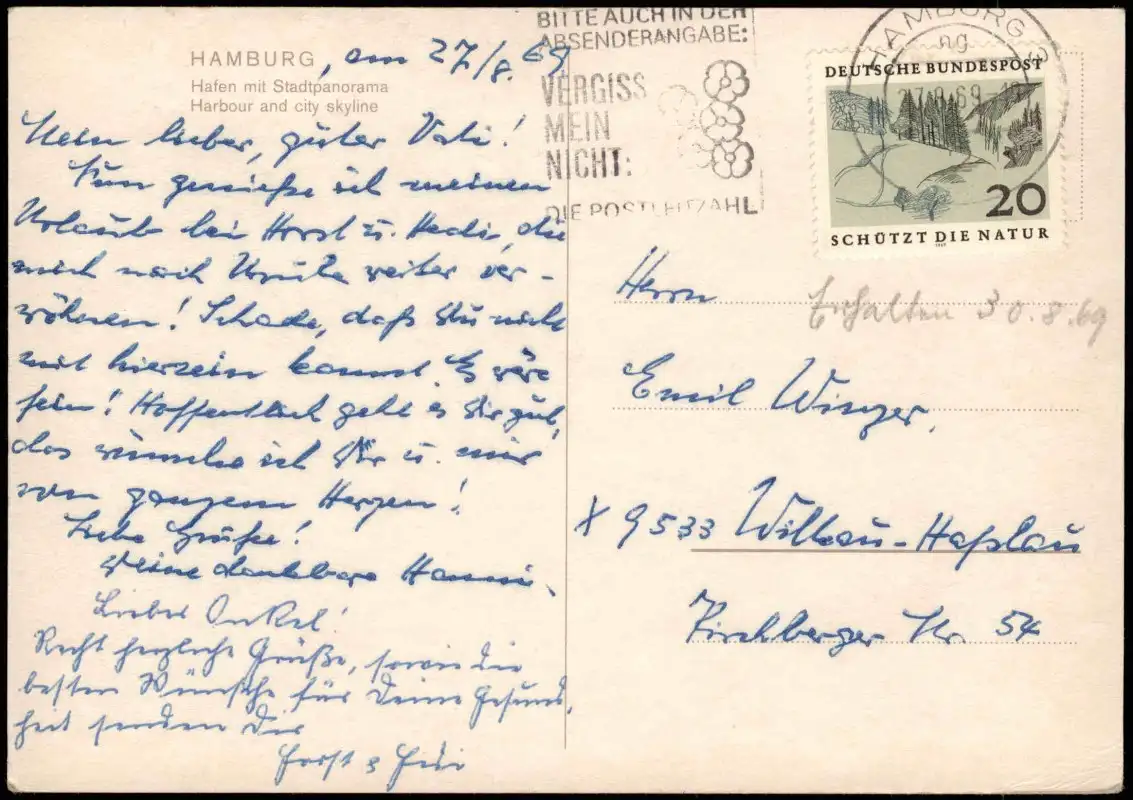 HAMBURG, am 27/8. 69
Hafen mit Stadtpanorama
Harbour and city skyline
Mein lieber, guter Vati!
Nun genieße ich meinen
Urlaub bei Horst u. Hedi, die
mich nach Ursula weiter ver-
wöhnen! Schade, daß Du nicht
mit hiersein kannst. Es wäre
fein! Hoffentlich geht es Dir gut,
das wünsche ich Dir u. mir
von ganzem Herzen!
Liebe Grüße!
Deine dankbare Hanni.
Lieber Onkel!
Recht herzliche Grüße, sowie die
besten Wünsche für Deine Gesund-
heit senden Dir
Horst &
BITTE AUCH IN DER
ABSENDERANGABE:
VERGISS
MEIN
NICHT:
DIE POSTLEITZAHL
HAMBURG
DEUTSCHE BUNDESPOST
20
SCHÜTZT DIE NATUR
1969
Herrn
Erhalten 30.8.69
Emil Winzer,
X 9533 Wilkau-Haßlau
Kirchberger Str. 54